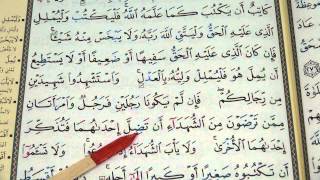 كَاتِبٌ أَن يَكْتُبَ كَمَا عَلَّمَهُ ٱللَّهُ فَلْيَكْتُبْ وَلْيُمْلِلِ
ٱلَّذِى عَلَيْهِ ٱلْحَقُّ وَلْيَتَّقِ ٱللَّهَ رَبَّهُۥ وَلَا يَبْخَسْ مِنْهُ شَيْـًٔا
فَإِن كَانَ ٱلَّذِى عَلَيْهِ ٱلْحَقُّ سَفِيهًا أَوْ ضَعِيفًا أَوْ لَا يَسْتَطِيعُ
أَن يُمِلَّ هُوَ فَلْيُمْلِلْ وَلِيُّهُۥ بِٱلْعَدْلِ وَٱسْتَشْهِدُوا۟ شَهِيدَيْنِ
مِن رِّجَالِكُمْ فَإِن لَّمْ يَكُونَا رَجُلَيْنِ فَرَجُلٌ وَٱمْرَأَتَانِ
مِمَّن تَرْضَوْنَ مِنَ ٱلشُّهَدَآءِ أَن تَضِلَّ إِحْدَىٰهُمَا فَتُذَكِّرَ
إِحْدَىٰهُمَا ٱلْأُخْرَىٰ وَلَا يَأْبَ ٱلشُّهَدَآءُ دُعُوا۟ وَلَا تَسْـَٔمُوٓا۟
أَن تَكْتُبُوهُ صَغِيرًا أَوْ كَبِيرًا إِلَىٰٓ أَجَلِهِۦ أَقْسَطُ